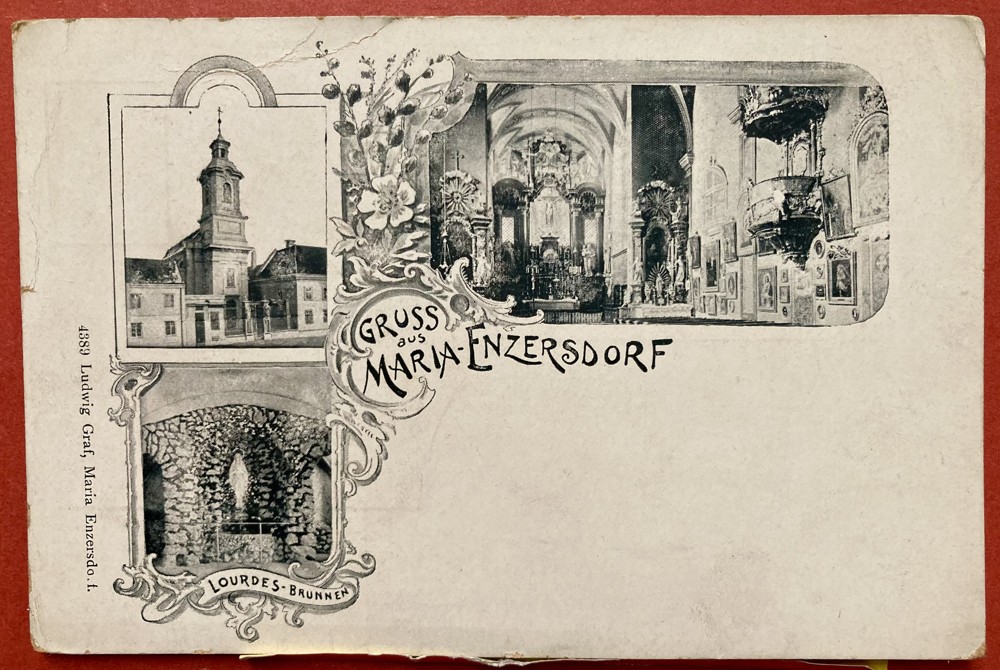 GRUSS
aus
MARIA-ENZERSDORF
LOURDES-BRUNNEN
4389 Ludwig Graf, Maria Enzersdo.f.